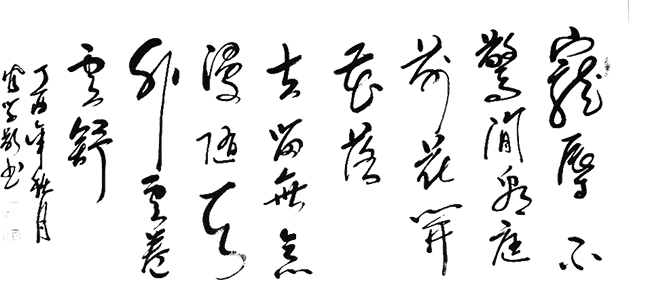 寵辱不
驚閒看庭
前花開
花落
去留無意
漫隨天
外雲卷
雲舒
丁酉年秋月
书